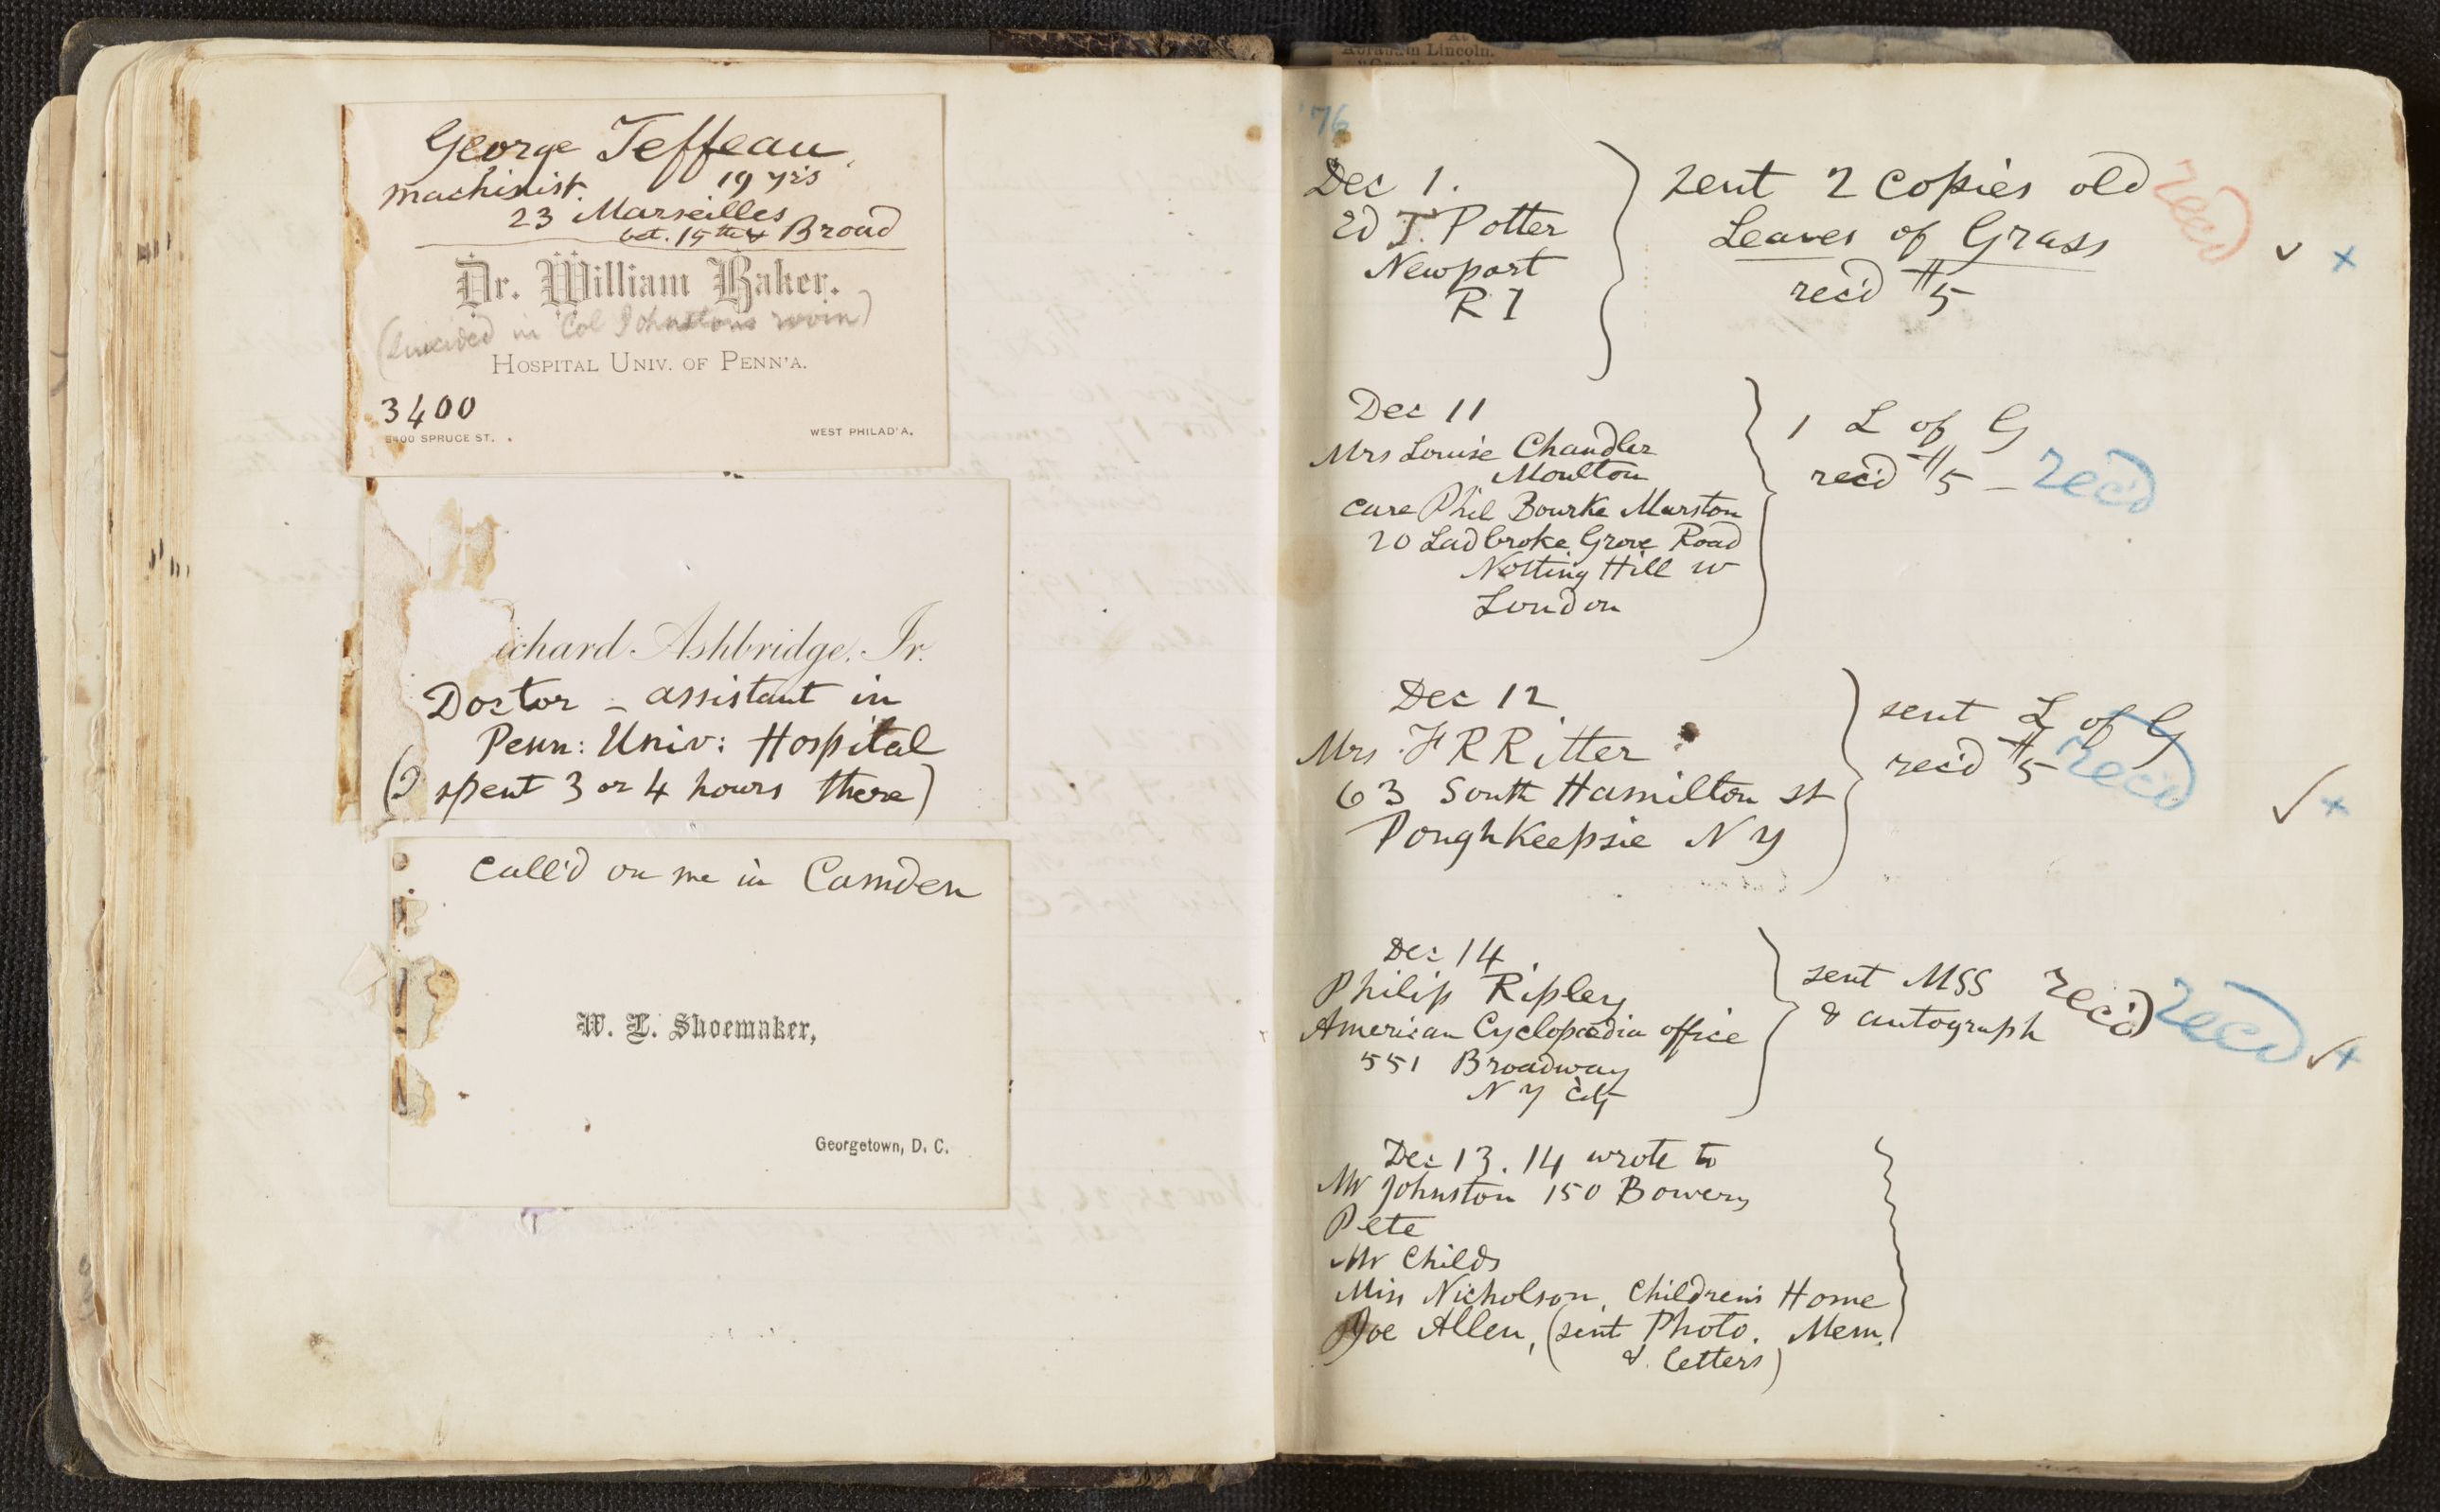 George Teffeau,
machinist. 19 yrs
23 Marseilles
bet. 15th & Broad
Dr. William Baker.
(suicided in Col Johnstons room)
HOSPITAL UNIV. OF PENN'A.
3400
3400 SPRUCE ST. WEST PHILAD'A.
ichard Ashbridge, Jr.
Doctor – assistant in
Penn: Univ: Hospital
(I spent 3 or 4 hours there)
call'd on me in Camden
W. L. Shoemaker,
Georgetown, D. C.
Abraham Lincoln.
'76
Dec 1.
Ed T. Potter
Newport
R I
sent 2 copies old
Leaves of Grass
rec'd $5
recd
Dec 11
Mrs Louise Chandler
Moulton
care Phil Bourke Marston
20 Ladbroke Grove Road
Notting Hill w
London
1 L of G
rec'd $5 – rec'd
Dec 12
Mrs F R Ritter
63 South Hamilton st
Poughkeepsie N Y
sent L of G
rec'd $5 rec'd
Dec 14
Philip Ripley
American Cyclopædia office
551 Broadway
N Y City
sent MSS rec'd recd
& autograph
Dec 13. 14 wrote to
Mr Johnston 150 Bowery
Pete
Mr Childs
Miss Nicholson, Children's Home
Joe Allen, (sent Photo. Mem.
& letters)